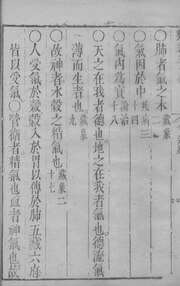 〇肺者氣之本 藏象二
〇氣因於中 疾病三十四
氣内爲寳 論治十八
〇天之在我者德也地之在我者氣也德流氣
薄而生者也 藏象九
〇故神者水穀之精氣也 藏象二十七
〇人受氣於穀穀入於胃以傳於肺五藏六府
皆以受氣〇營衛者精氣也血者神氣也故